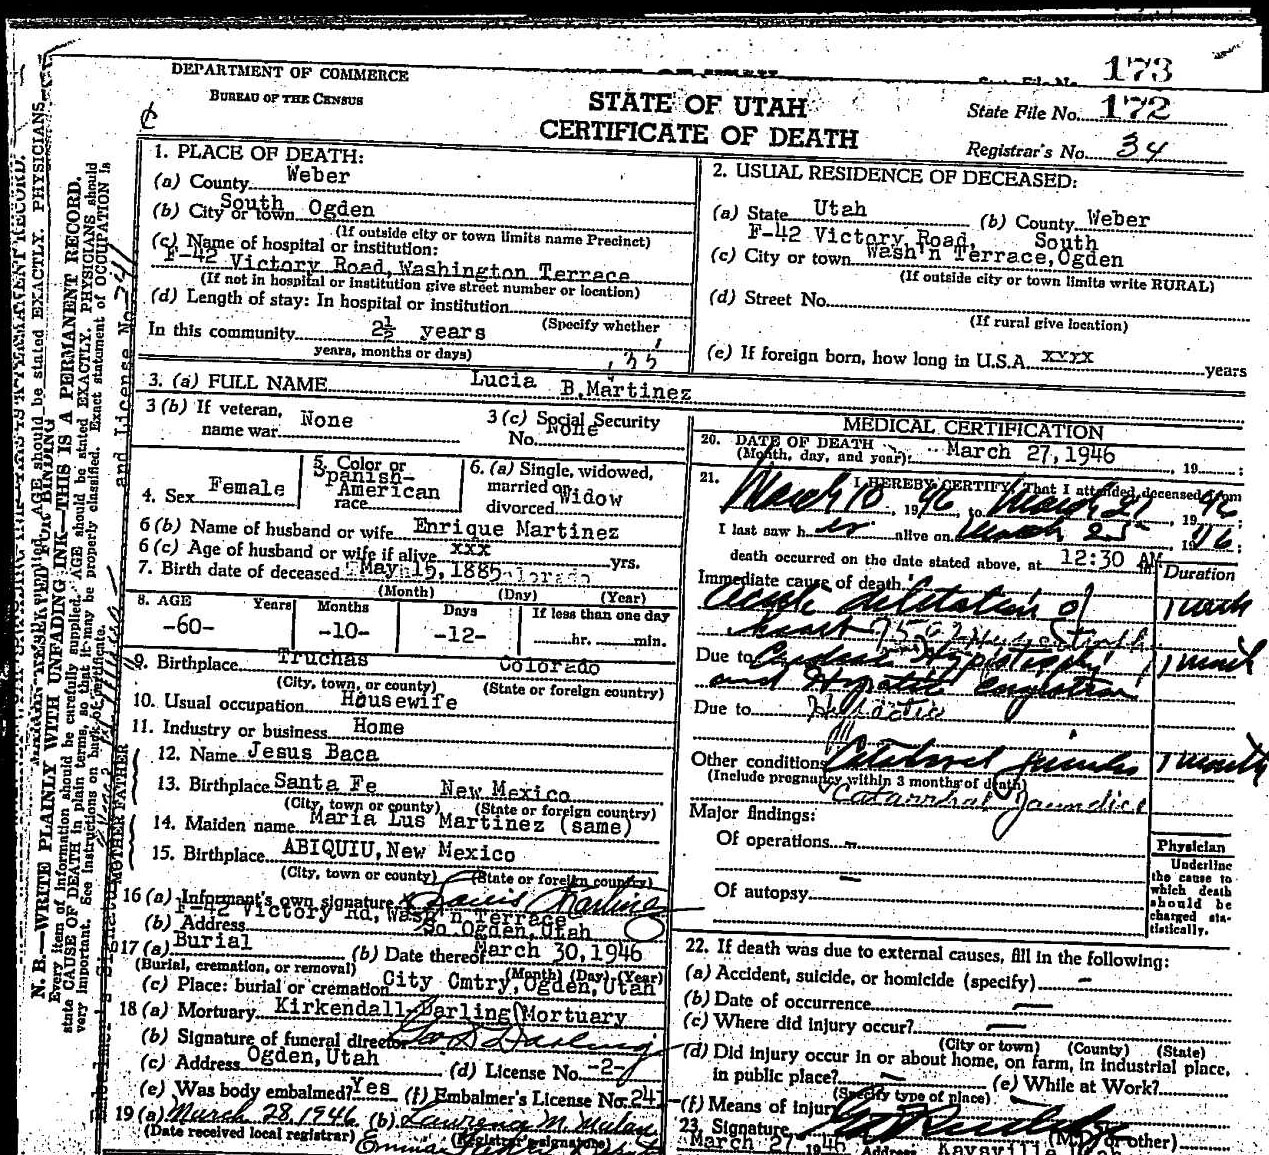 173
DEPARTMENT OF COMMERCE
BUREAU OF THE CENSUS
STATE OF UTAH
CERTIFICATE OF DEATH
State File No. 172
Registrar's No. 34
N. B.—WRITE PLAINLY WITH UNFADING INK—THIS IS A PERMANENT RECORD.
Every item of information should be carefully supplied. AGE should be stated EXACTLY. PHYSICIANS should
state CAUSE OF DEATH in plain terms, so that it may be properly classified. Exact statement of OCCUPATION is
very important. See instructions on back of certificate.
1. PLACE OF DEATH:
(a) County Weber
(b) City or town South Ogden
(If outside city or town limits name Precinct)
(c) Name of hospital or institution:
F-42 Victory Road, Washington Terrace
(If not in hospital or institution give street number or location)
(d) Length of stay: In hospital or institution
(Specify whether
In this community 2½ years
years, months or days)
2. USUAL RESIDENCE OF DECEASED:
(a) State Utah (b) County Weber
F-42 Victory Road, South
(c) City or town Wash'n Terrace, Ogden
(If outside city or town limits write RURAL)
(d) Street No.
(If rural give location)
(e) If foreign born, how long in U.S.A. xxxx years
3. (a) FULL NAME Lucia B. Martinez
3 (b) If veteran, name war None
3 (c) Social Security No. None
4. Sex Female
5. Color or race Spanish-American
6. (a) Single, widowed, married or divorced Widow
6 (b) Name of husband or wife Enrique Martinez
6 (c) Age of husband or wife if alive xxx yrs.
7. Birth date of deceased May 15, 1885
(Month) (Day) (Year)
8. AGE Years Months Days If less than one day
-60- -10- -12- hr. min.
9. Birthplace Truchas Colorado
(City, town, or county) (State or foreign country)
10. Usual occupation Housewife
11. Industry or business Home
FATHER
12. Name Jesus Baca
13. Birthplace Santa Fe New Mexico
(City, town or county) (State or foreign country)
MOTHER
14. Maiden name Maria Lus Martinez (same)
15. Birthplace ABIQUIU, New Mexico
(City, town or county) (State or foreign country)
16 (a) Informant's own signature
F-42 Victory Rd, Wash'n Terrace
(b) Address So Ogden, Utah
17 (a) Burial (b) Date thereof March 30, 1946
(Burial, cremation, or removal) (Month) (Day) (Year)
(c) Place: burial or cremation City Cmtry, Ogden, Utah
18 (a) Mortuary Kirkendall Darling Mortuary
(b) Signature of funeral director Darling
(c) Address Ogden, Utah (d) License No. -2-
(e) Was body embalmed? Yes (f) Embalmer's License No. 241
19 (a) March 28, 1946 (b)
(Date received local registrar) (Registrar's signature)
MEDICAL CERTIFICATION
20. DATE OF DEATH
(Month, day, and year): March 27, 1946, 19
21. I HEREBY CERTIFY, That I attended deceased from
March 10, 1946, to March 27, 1946;
I last saw her alive on March 25 1946;
death occurred on the date stated above, at 12:30 AM
Duration
Immediate cause of death
Acute dilitation of 1 month
heart
Due to Cardiac Hypertrophy 1 month
and Hepatic Congestion
Due to
Other conditions Catahrral Jaundice 1 month
(Include pregnancy within 3 months of death)
Catarrhal Jaundice
Major findings:
Of operations
Of autopsy
Physician
Underline
the cause to
which death
should be
charged sta-
tistically.
22. If death was due to external causes, fill in the following:
(a) Accident, suicide, or homicide (specify) -
(b) Date of occurrence
(c) Where did injury occur?
(City or town) (County) (State)
(d) Did injury occur in or about home, on farm, in industrial place,
in public place? (e) While at Work?
(Specify type of place)
(f) Means of injury
23. Signature (M.D. or other)
March 27 1946 Address Kaysville Utah